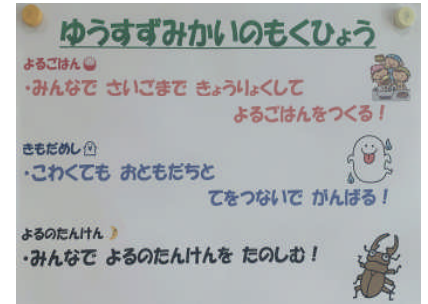 ゆうすずみかいのもくひょう
よるごはん
・みんなで さいごまで きょうりょくして
よるごはんをつくる！
きもだめし
・こわくても おともだちと
てをつないで がんばる！
よるのたんけん
・みんなで よるのたんけんを たのしむ！